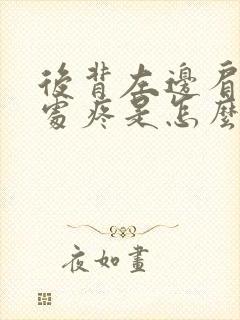 後背左邊肩
處疼是怎麼
夜如晝